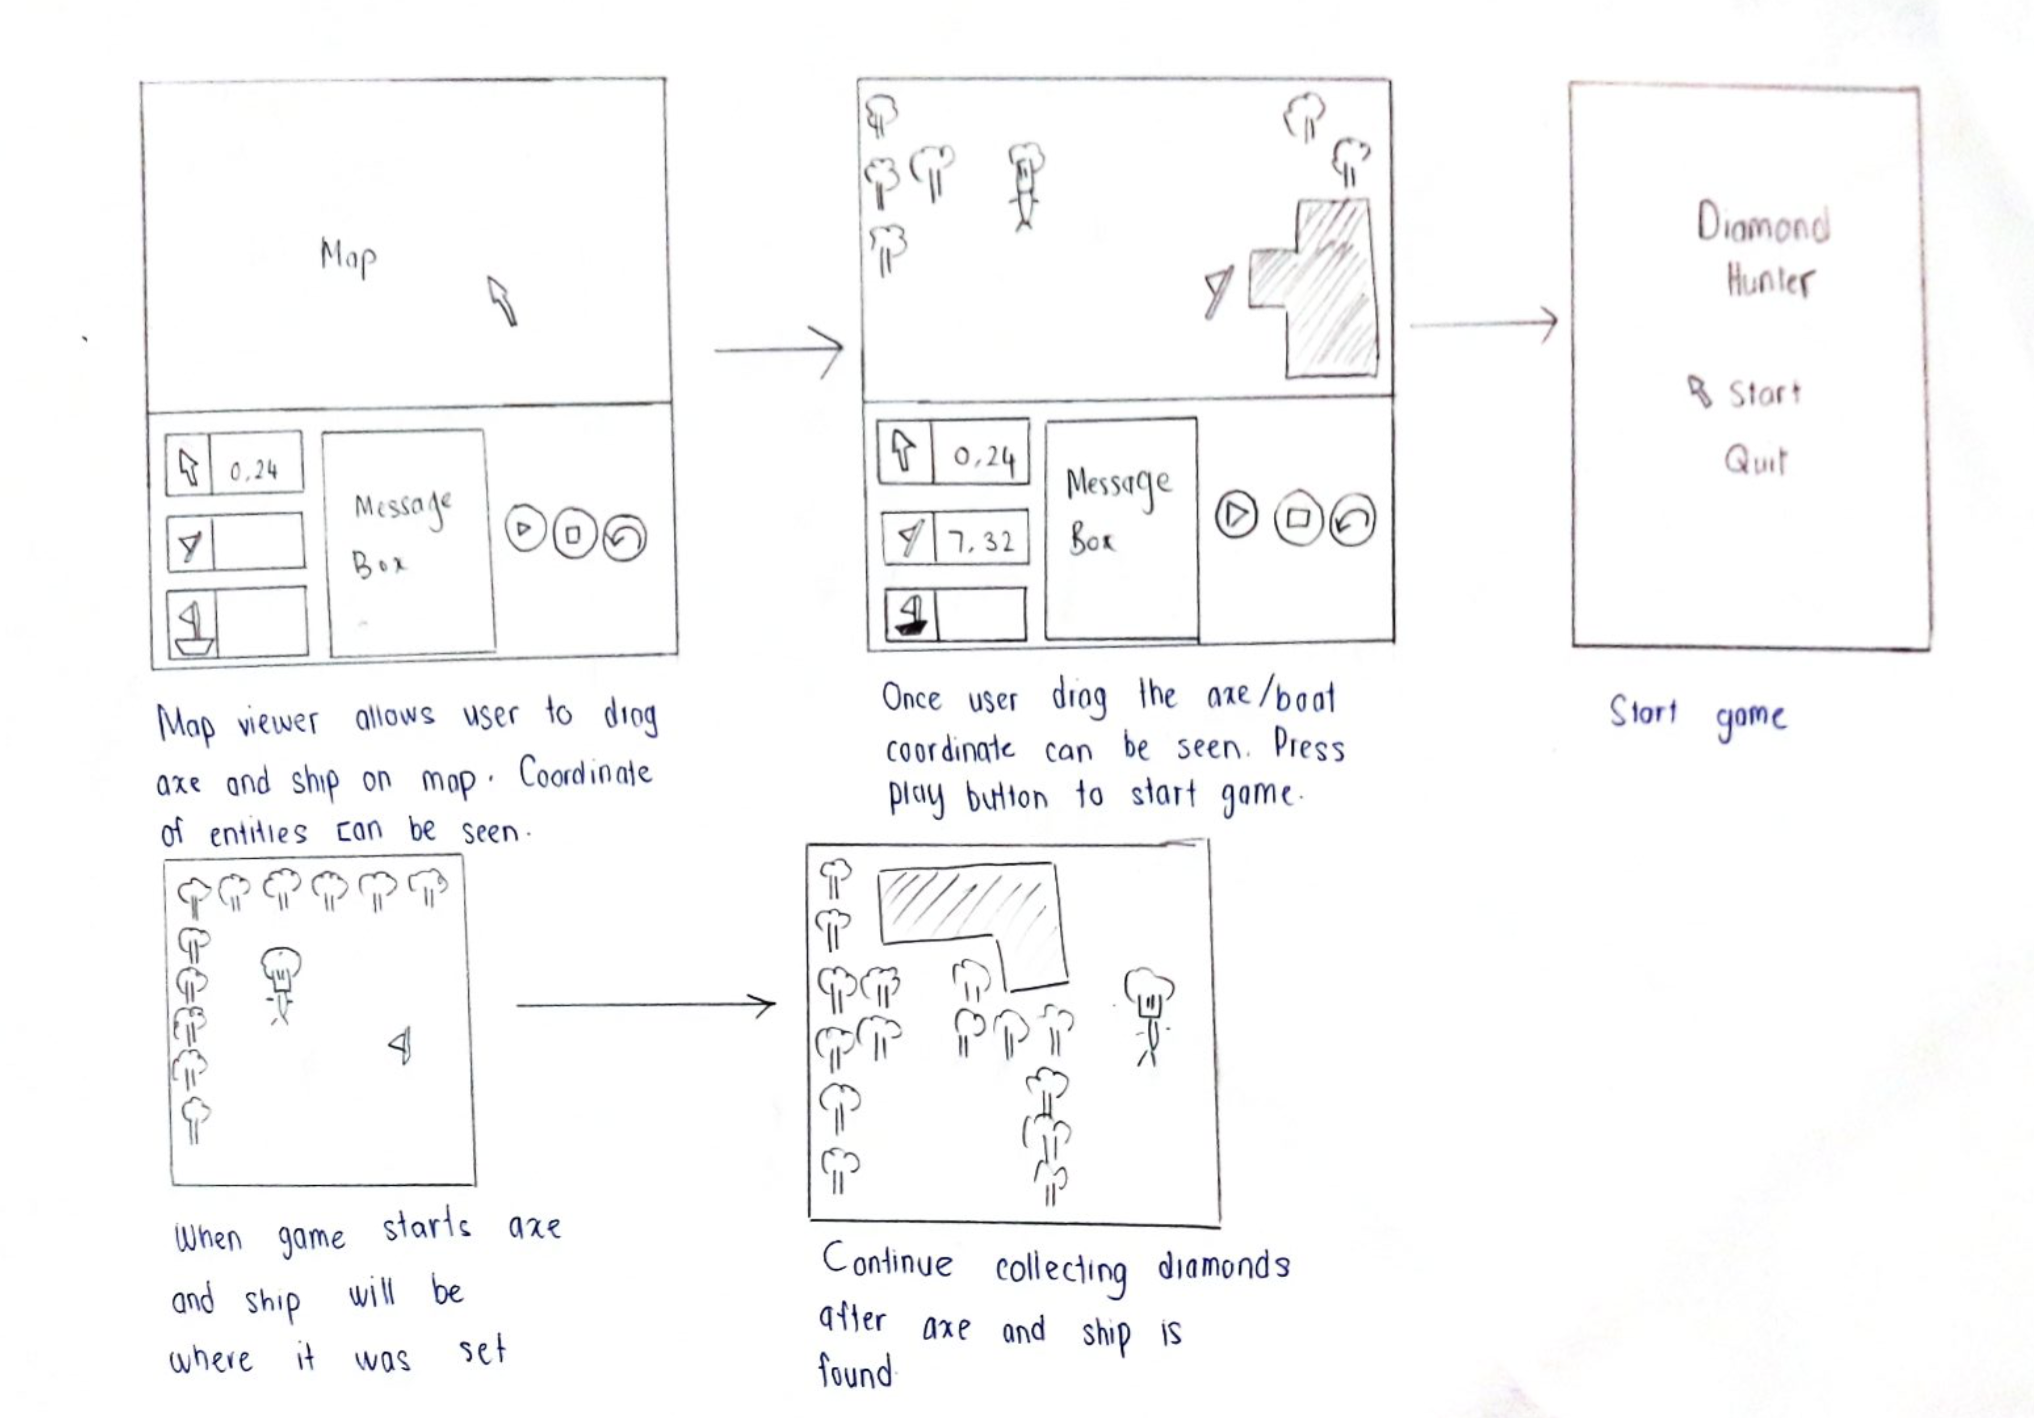 Map
0,24
Message
Box
Map viewer allows user to drag
axe and ship on map. Coordinate
of entities can be seen.
0,24
7,32
Message
Box
Once user drag the axe/boat
coordinate can be seen. Press
play button to start game.
Diamond
Hunter
Start
Quit
Start game
When game starts axe
and ship will be
where it was set
Continue collecting diamonds
after axe and ship is
found.